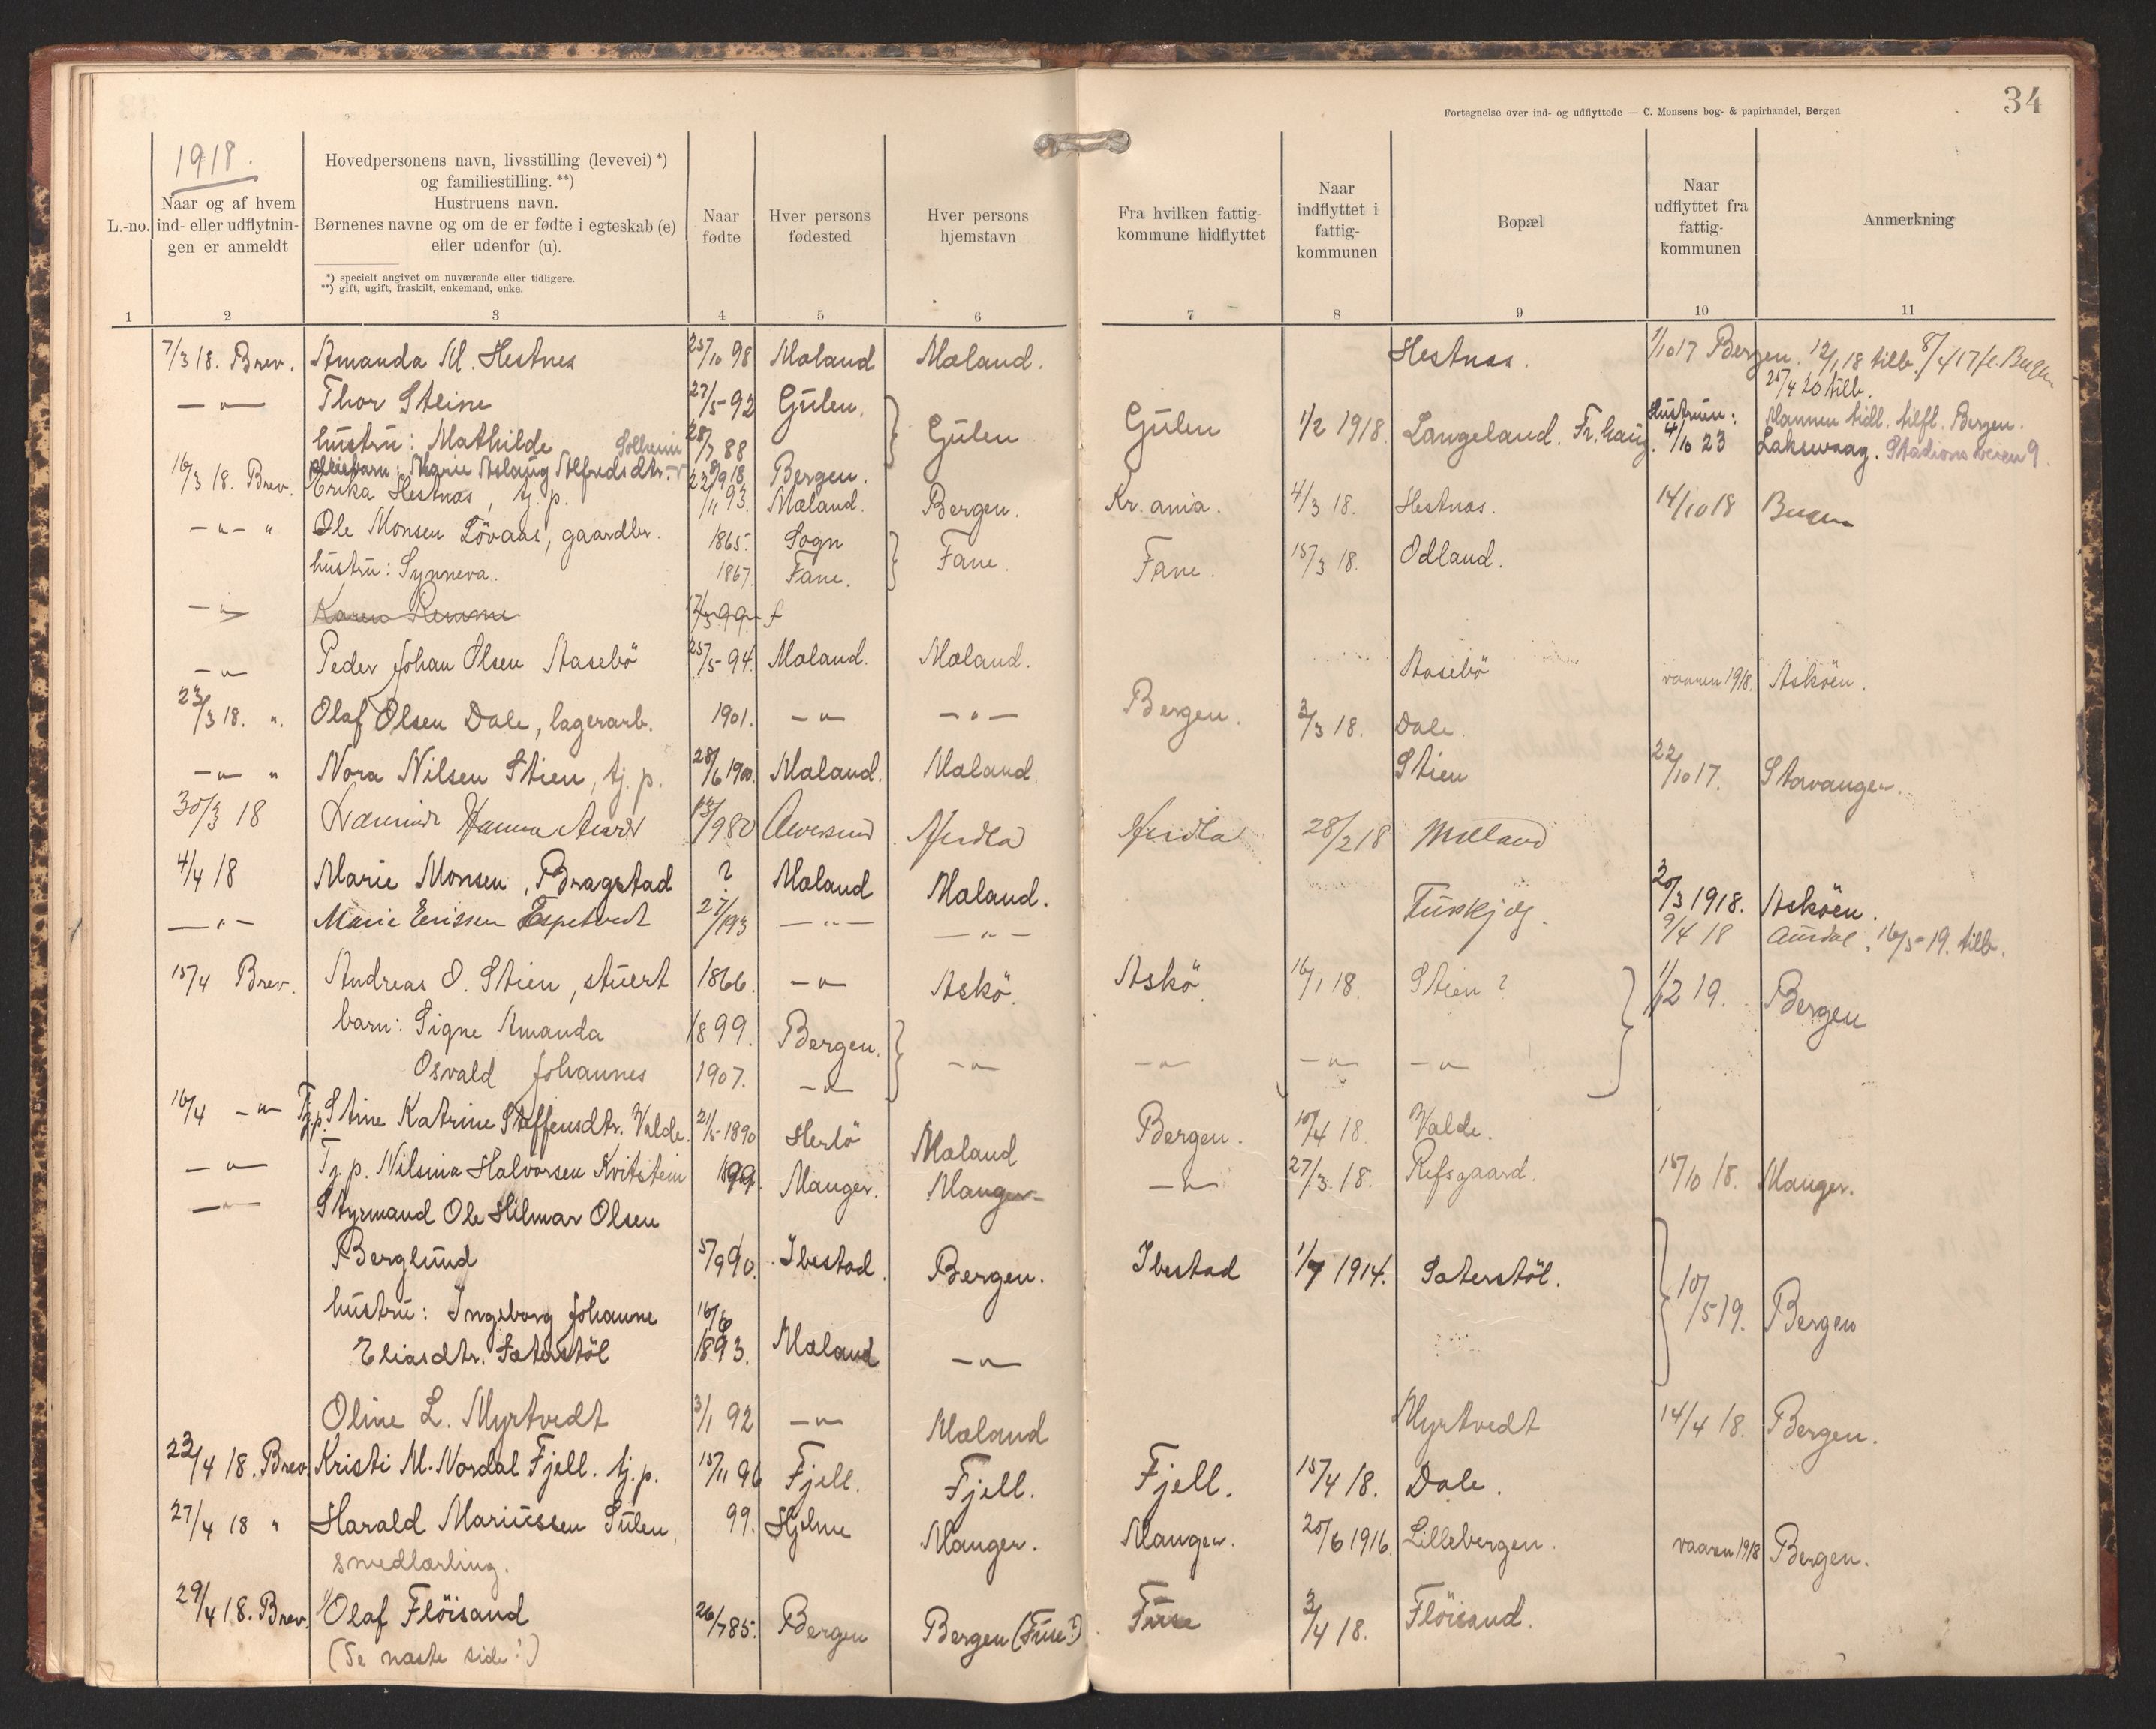 34
Fortegnelse over ind- og udflyttede — C. Monsens bog- & papirhandel, Bergen
1918.
L.-no.
Naar og af hvem
ind- eller udflytnin-
gen er anmeldt
Hovedpersonens navn, livsstilling (levevei) *)
og familiestilling. **)
Hustruens navn.
Børnenes navne og om de er fødte i egteskab (e)
eller udenfor (u).
*) specielt angivet om nuværende eller tidligere.
**) gift, ugift, fraskilt, enkemand, enke.
Naar
fødte
Hver persons
fødested
Hver persons
hjemstavn
Fra hvilken fattig-
kommune hidflyttet
Naar
indflyttet i
fattig-
kommunen
Bopæl
Naar
udflyttet fra
fattig-
kommunen
Anmerkning
1 2 3 4 5 6 7 8 9 10 11
7/3 18. Brev. Amanda M. Hestnes 25/10 98 Mæland Mæland. Hestnæs. 1/10 17 Bergen. 12/1 18 tilb. 8/4 17 fl. Bergen
25/4 20 tilb.
—"— Thor Steine 27/5-92 Gulen. Gulen Gulen 1/2 1918. Langeland. Fr.haug. Hustruen: 4/10 23 Mannen tidl. tilfl. Bergen.
hustru: Mathilde Solheim 28/7 88 Laksevaag. Stadionsveien 9.
pleiebarn: Marie Aslaug Alfredsdtr. 8/9 18 Bergen.
16/3 18. Brev. Erika Hestnæs, tj. p. 22/11 93. Mæland. Bergen. Kr.ania. 4/3 18. Hestnæs. 14/10 18 Bergen
—"— " Ole Monsen Lövaas, gaardbr. 1865. Sogn Fane. Fane. 15/3 18. Odland.
hustru: Synneva. 1867. Fane.
—"— Karen 99 f
—"— Peder Johan Olsen Aasebö 25/5-94. Mæland. Mæland. Aasebö vaaren 1918. Asköen.
23/3 18. ". Olaf Olsen Dale, lagerarb. 1901. —"— —"— Bergen. 3/3 18. Dale.
—"— " Nora Nilsen Stien, tj. p. 28/6 1900. Mæland. Mæland. Stien 22/10 17. Stavanger.
30/3 18 Hanna 13/9 80 Alversund Herdla Herdla 28/2 18 Mælland
4/4 18 Marie Monsen, Bragstad ? Mæland Mæland. 20/3 1918. Asköen.
—"— Marie Erissen Espetvedt 27/1 93 —"— —"— Tuskjæs. 9/4 18 Aurdal. 16/5-19. tilb.
15/4 Brev. Andreas O. Stien, stuert 1866. —"— Askö. Askö. 16/1 18. Stien? 1/12 19. Bergen
barn: Signe Amanda 1899. Bergen. —"— —"— —"— —"—
Osvald Johannes 1907. —"—
16/4 —"— Tj.p. Stine Katrine Steffensdtr. Valde. 21/5-1890 Herlö Mæland Bergen. 10/4 18. Valde.
—"— Tj. p. Nilsina Halvorsen Kvitstein 1899. Manger. Manger. —"— 27/3. 18. Refsgaard. 15/10 18. Manger.
—"— Styrmand Ole Hilmar Olsen
Berglund 5/9 90. Ibestad. Bergen. Ibestad 1/7 1914. Sæterstöl. 10/5-19. Bergen
hustru: Ingeborg Johanne 16/6
Eliasdtr. Sæterstöl 1893. Mæland —"—
Oline L. Myrtvedt 3/1 92 —"— Mæland Myrtvedt 14/4 18. Bergen.
23/4 18. Brev. Kristi M. Nordal Fjell. tj. p. 15/11 96 Fjell. Fjell. Fjell. 15/4 18. Dale.
27/4 18 " Harald Mariussen Sulen, 99. Hjelme Manger. Manger. 20/6 1916. Lillebergen. vaaren 1918 Bergen.
smedlærling.
29/4 18. Brev. Olaf Flöisand 26/7 85. Bergen Bergen (Fuse?) Fuse 3/4 18. Flöisand.
(Se næste side!)